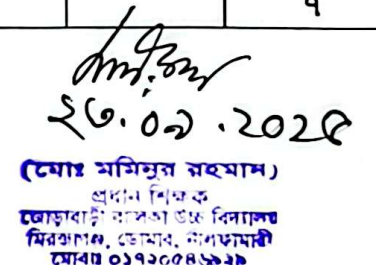 ৭
২৩.০৯.২০২৫
(মোঃ মমিনুর রহমান)
প্রধান শিক্ষক
জোড়াবাড়ী বালিকা উচ্চ বিদ্যালয়
মিরজাগঞ্জ, ডোমার, নীলফামারী